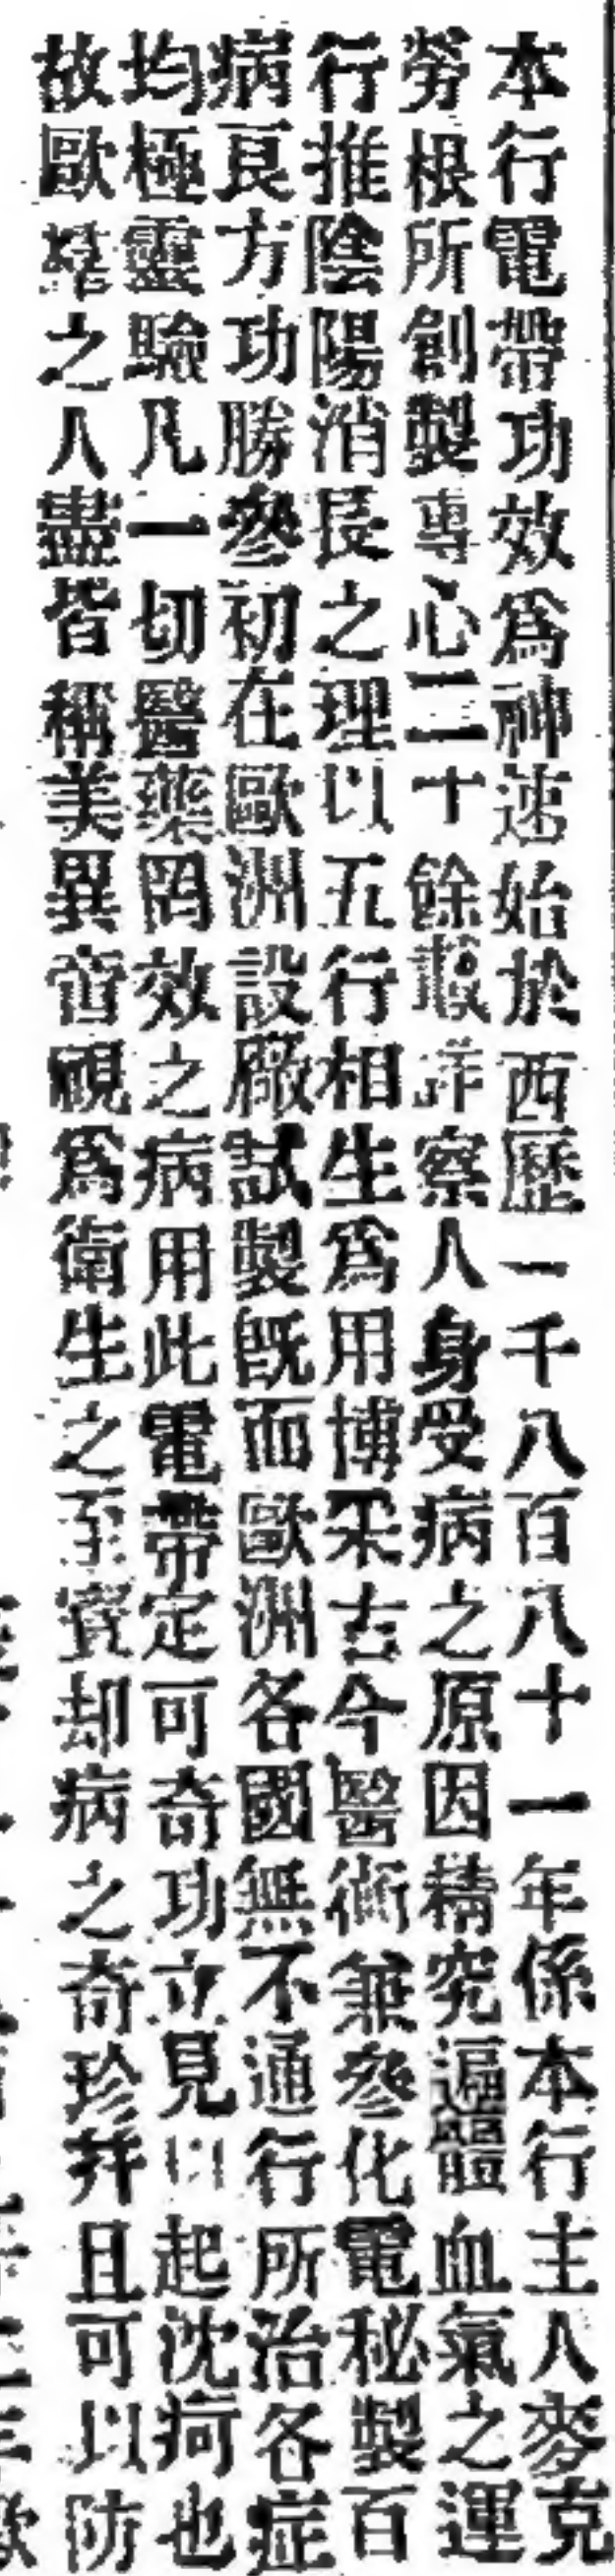 本行電帶功效爲神速始於西歷一千八百八十一年係本行主人麥克
勞根所創製專心二十餘載詳察人身受病之原因精究遍體血氣之運
行推陰陽消長之理以五行相生爲用博采古今醫術兼參化電秘製百
病良方功勝參初在歐洲設廠試製旣而歐洲各國無不通行所治各症
均極靈驗凡一切醫藥罔效之病用此電帶定可奇功立見以起沈疴也
故歐之人盡皆稱美異常視爲衛生之至寶却病之奇珍幷且可以防